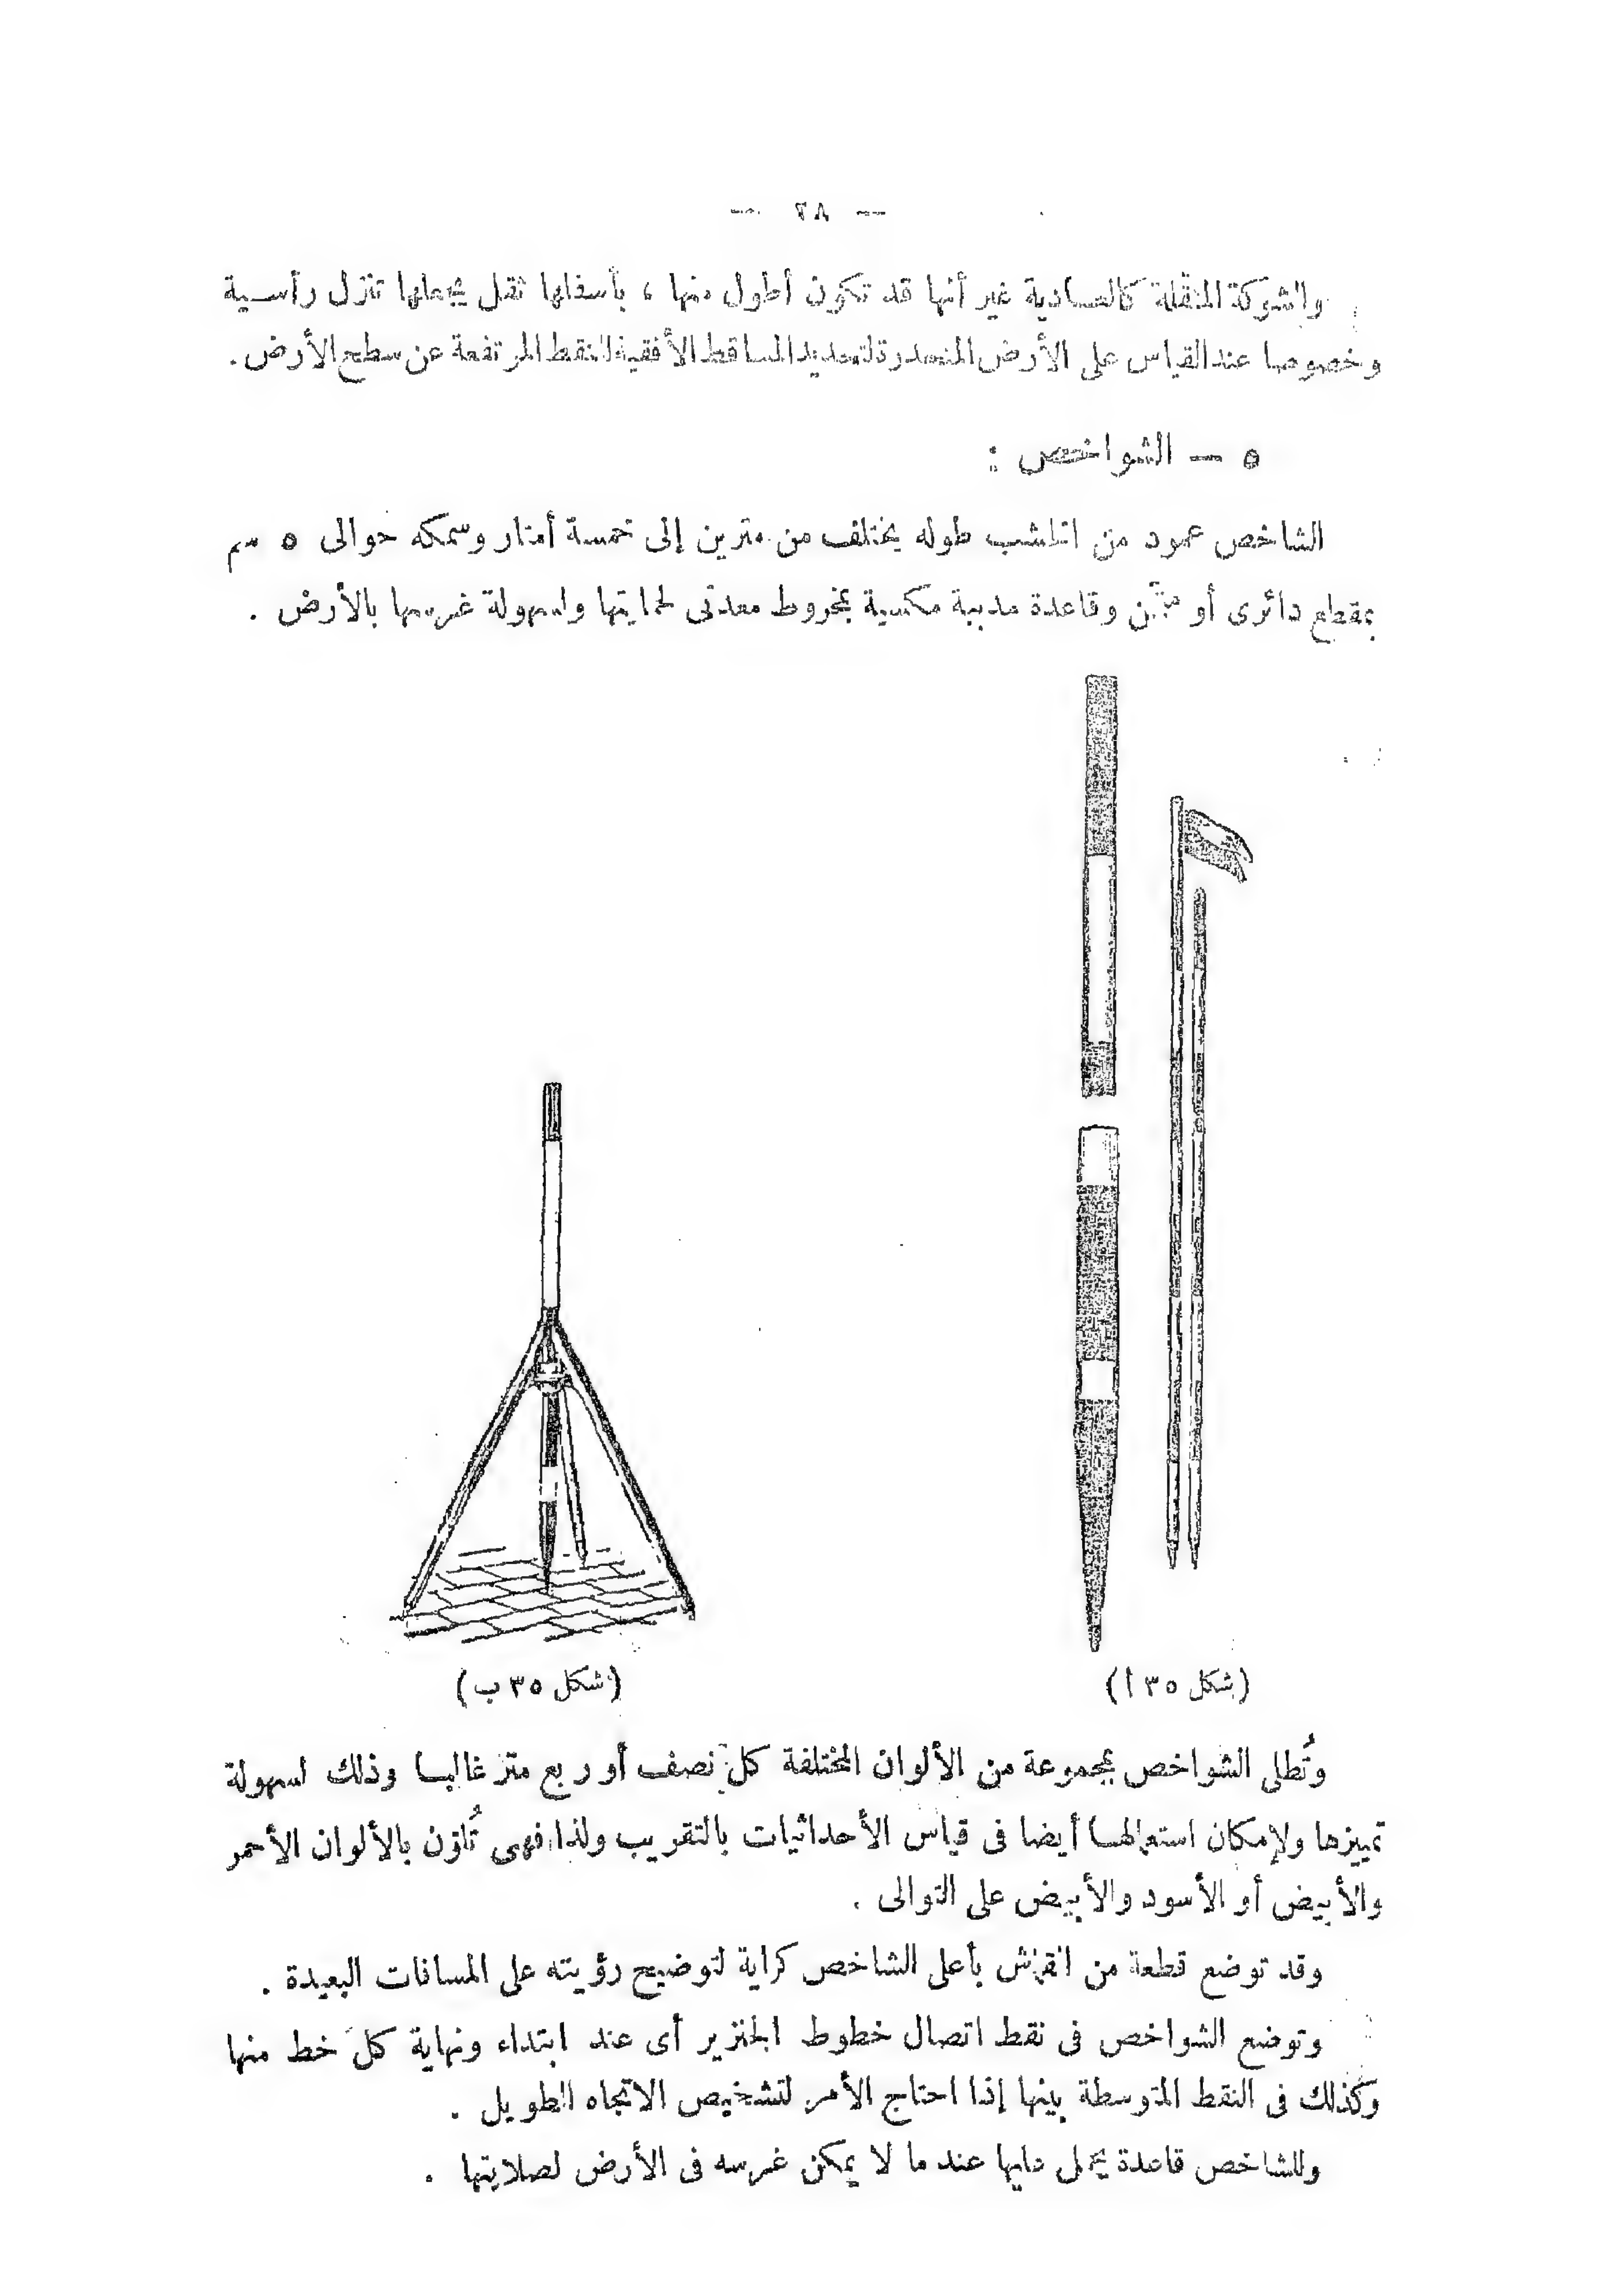 — ٢٨ —
والشوكة المثقلة كالعادية غير أنها قد تكون أطول منها ، بأسفلها ثقل يجعلها تنزل رأسية
وخصوصا عند القياس على الأرض المنحدرة لتحديد المساقط الأفقية للنقط المرتفعة عن سطح الأرض .
٥ — الشواخص :
الشاخص عمود من الخشب طوله يختلف من مترين إلى خمسة أمتار وسمكه حوالى ٥ سم
بمقطع دائرى أو مثمن وقاعدة مدببة مكسية بمخروط معدنى لحمايتها ولسهولة غرسها بالأرض .
(شكل ٣٥ أ)
(شكل ٣٥ ب)
وتُطلى الشواخص بمجموعة من الألوان المختلفة كل نصف أو ربع متر غالبا وذلك لسهولة
تمييزها ولإمكان استعمالها أيضا فى قياس الأحداثيات بالتقريب ولذا فهى تُلوّن بالألوان الأحمر
والأبيض أو الأسود والأبيض على التوالى .
وقد توضع قطعة من القماش بأعلى الشاخص كراية لتوضيح رؤيته على المسافات البعيدة .
وتوضع الشواخص فى نقط اتصال خطوط الجنزير أى عند ابتداء ونهاية كل خط منها
وكذلك فى النقط المتوسطة بينها إذا احتاج الأمر لتشخيص الاتجاه الطويل .
وللشاخص قاعدة يحمل عليها عند ما لا يمكن غرسه فى الأرض لصلابتها .